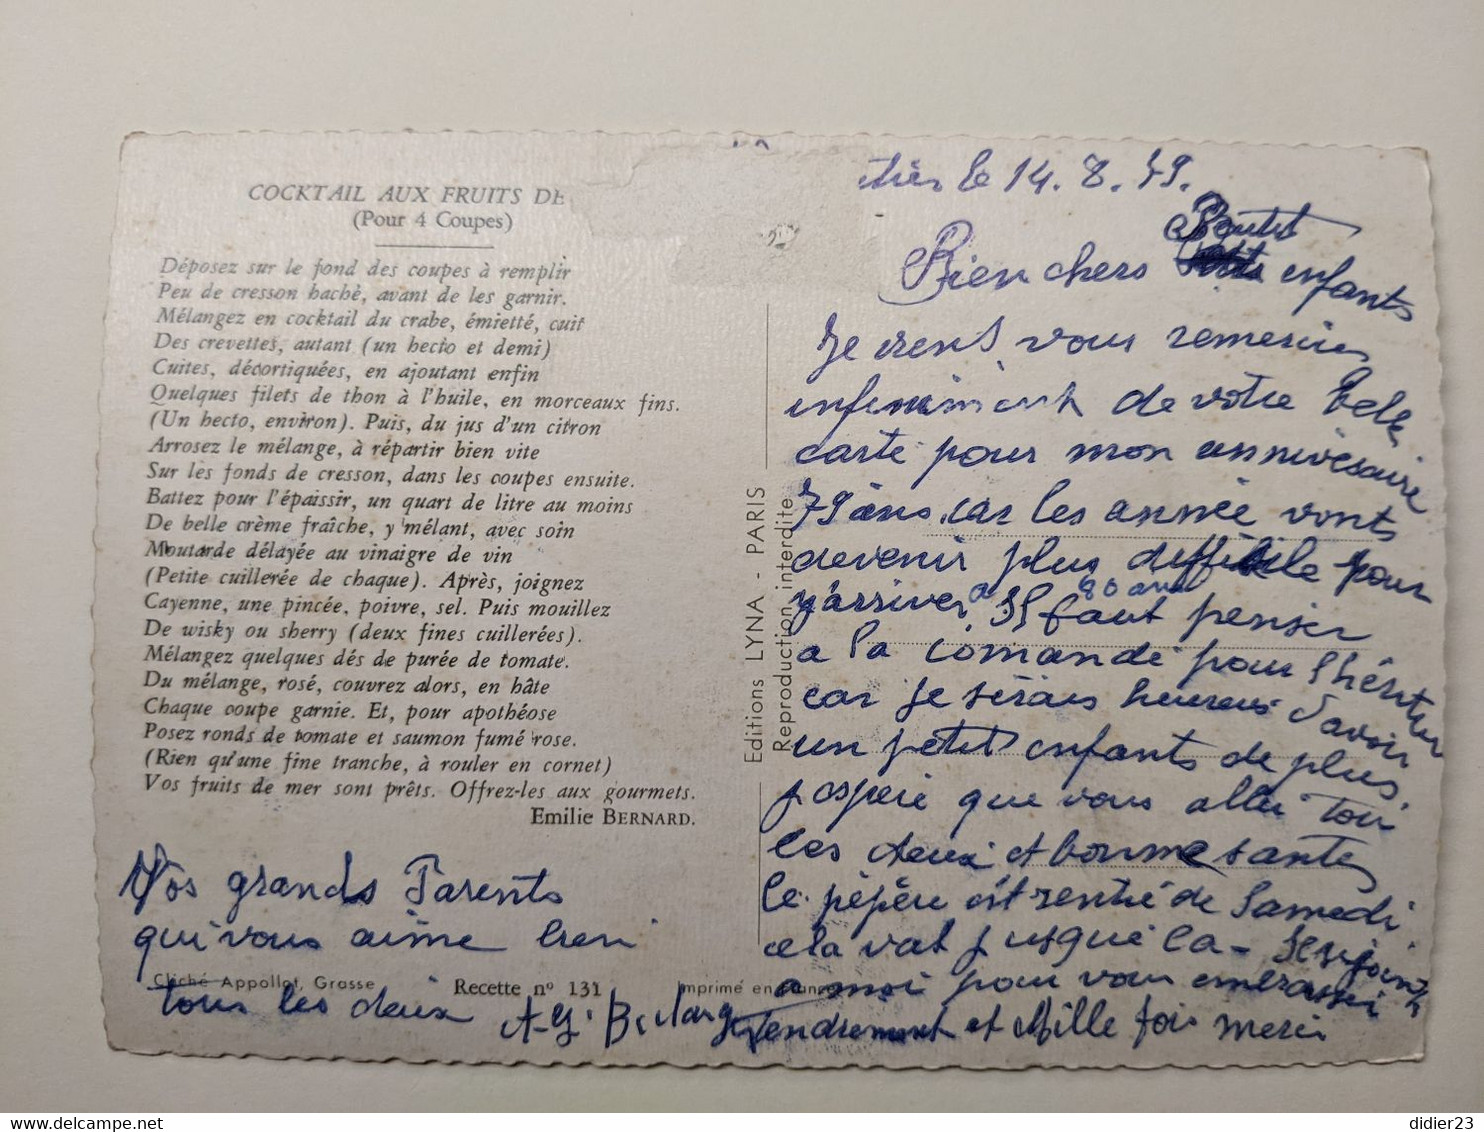 COCKTAIL AUX FRUITS DE
(Pour 4 Coupes)
Déposez sur le fond des coupes à remplir
Peu de cresson haché, avant de les garnir.
Mélangez en cocktail du crabe, émietté, cuit
Des crevettes, autant (un hecto et demi)
Cuites, décortiquées, en ajoutant enfin
Quelques filets de thon à l'huile, en morceaux fins.
(Un hecto, environ). Puis, du jus d'un citron
Arrosez le mélange, à répartir bien vite
Sur les fonds de cresson, dans les coupes ensuite.
Battez pour l'épaissir, un quart de litre au moins
De belle crème fraîche, y mélant, avec soin
Moutarde délayée au vinaigre de vin
(Petite cuillerée de chaque). Après, joignez
Cayenne, une pincée, poivre, sel. Puis mouillez
De wisky ou sherry (deux fines cuillerées).
Mélangez quelques dés de purée de tomate.
Du mélange, rosé, couvrez alors, en hâte
Chaque coupe garnie. Et, pour apothéose
Posez ronds de tomate et saumon fumé rose.
(Rien qu'une fine tranche, à rouler en cornet)
Vos fruits de mer sont prêts. Offrez-les aux gourmets.
Emilie BERNARD.
Vos grands Parents
qui vous aime bien
Cliché Appollot, Grasse
Recette nº 131
Imprimé en
tous les deux
Editions LYNA - PARIS
Reproduction interdite
le 14. 8. 79.
Bien chers enfants
Je viens vous remercier
infiniment de votre bele
carte pour mon annivésaire
79 ans car les année vonts
devenir plus difficile pour
y arriver a 80 ans Il faut penser
a la comande pour l'héritier
car je serais heureux d'avoir
un petit enfants de plus
j espere que vous aller tous
les deux et bonne santé
le pépère est rentré de Samedi
cela vat jusque la - se joint
a moi pour vous embrasser
tendrement et Mille fois merci
didier23